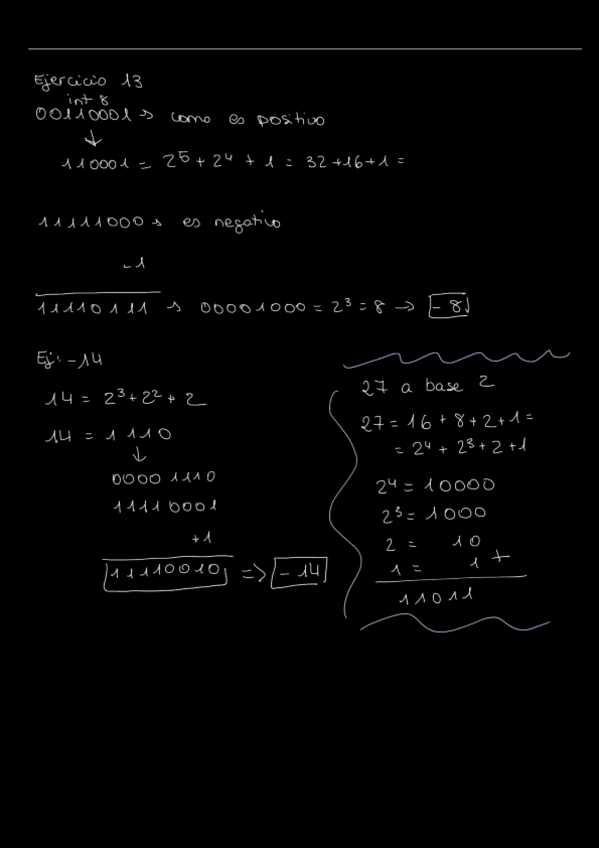 Ejercicio 13
int 8
00110001 → como es positivo
↓
110001 = 2⁵ + 2⁴ + 1 = 32 + 16 + 1 =
11111000 → es negativo
- 1
11110111 → 00001000 = 2³ = 8 → - 8
Ej: - 14
14 = 2³ + 2² + 2
14 = 1110
↓
00001110
11110001
+ 1
11110010 => - 14
27 a base 2
27 = 16 + 8 + 2 + 1 =
= 2⁴ + 2³ + 2 + 1
2⁴ = 10000
2³ = 1000
2 = 10
1 = 1 +
11011